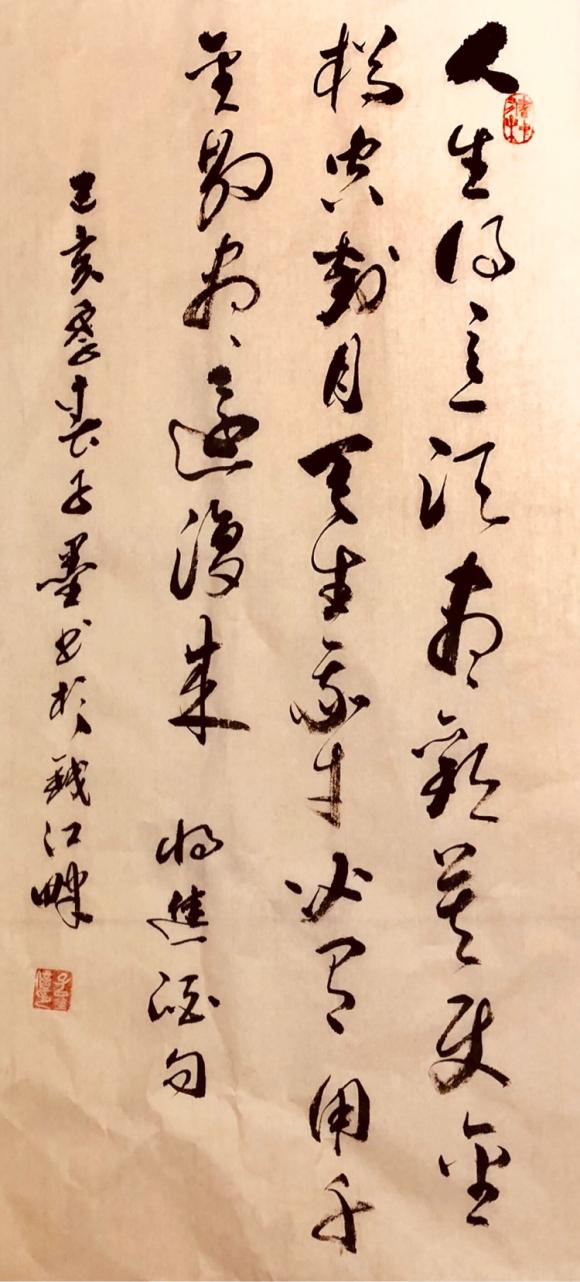 人生得意須盡歡莫使金
樽空對月天生我才必有用千
金散盡還復來 將進酒句
己亥春子墨书於錢江畔